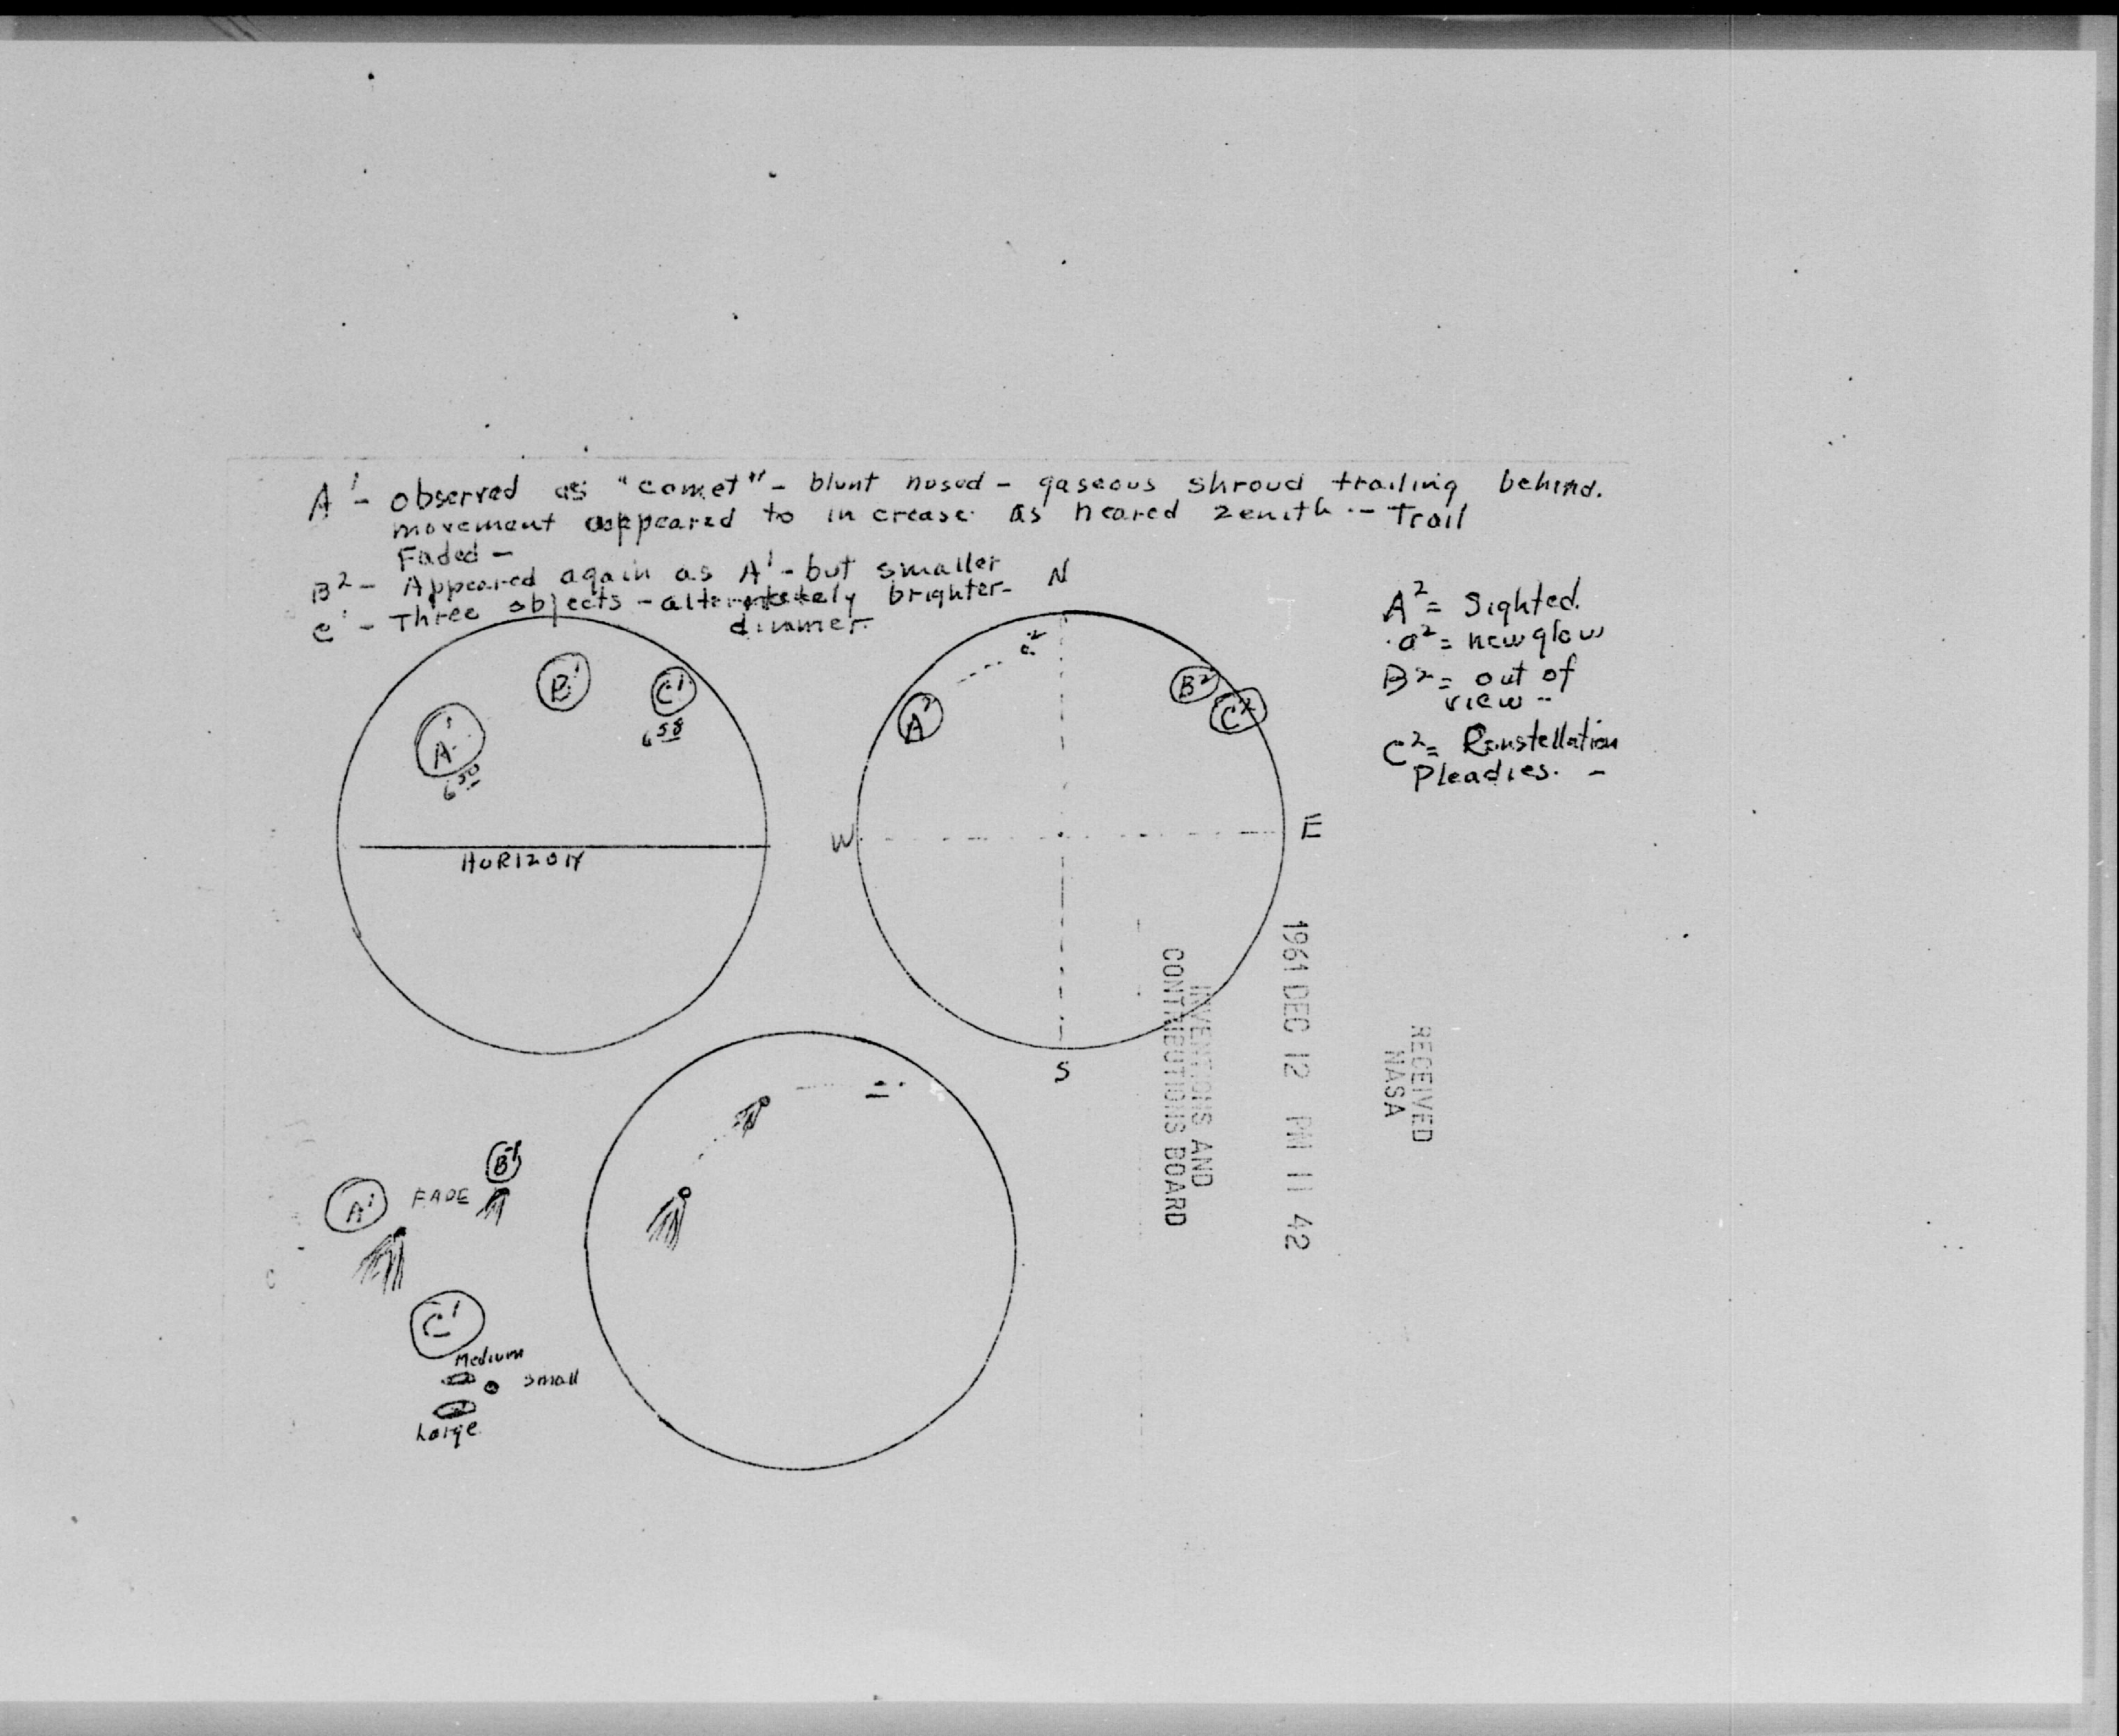 A¹ - observed as "comet" - blunt nosed - gaseous shroud trailing behind.
movement appeared to increase as neared zenith -- Trail
Faded -
B² - Appeared again as A¹ - but smaller
C¹ - Three objects - alternately brighter-
dimmer.
A¹
6 50
B¹
C¹
6 58
HORIZON
N
a²
A²
B²
C²
W
E
S
A² = Sighted.
a² = new glow
B² = out of
view --
C² = Constellation
Pleadies. -
RECEIVED
NASA
1961 DEC 12 PM 11 42
INVENTIONS AND
CONTRIBUTIONS BOARD
A¹
FADE
B¹
C¹
Medium
small
Large